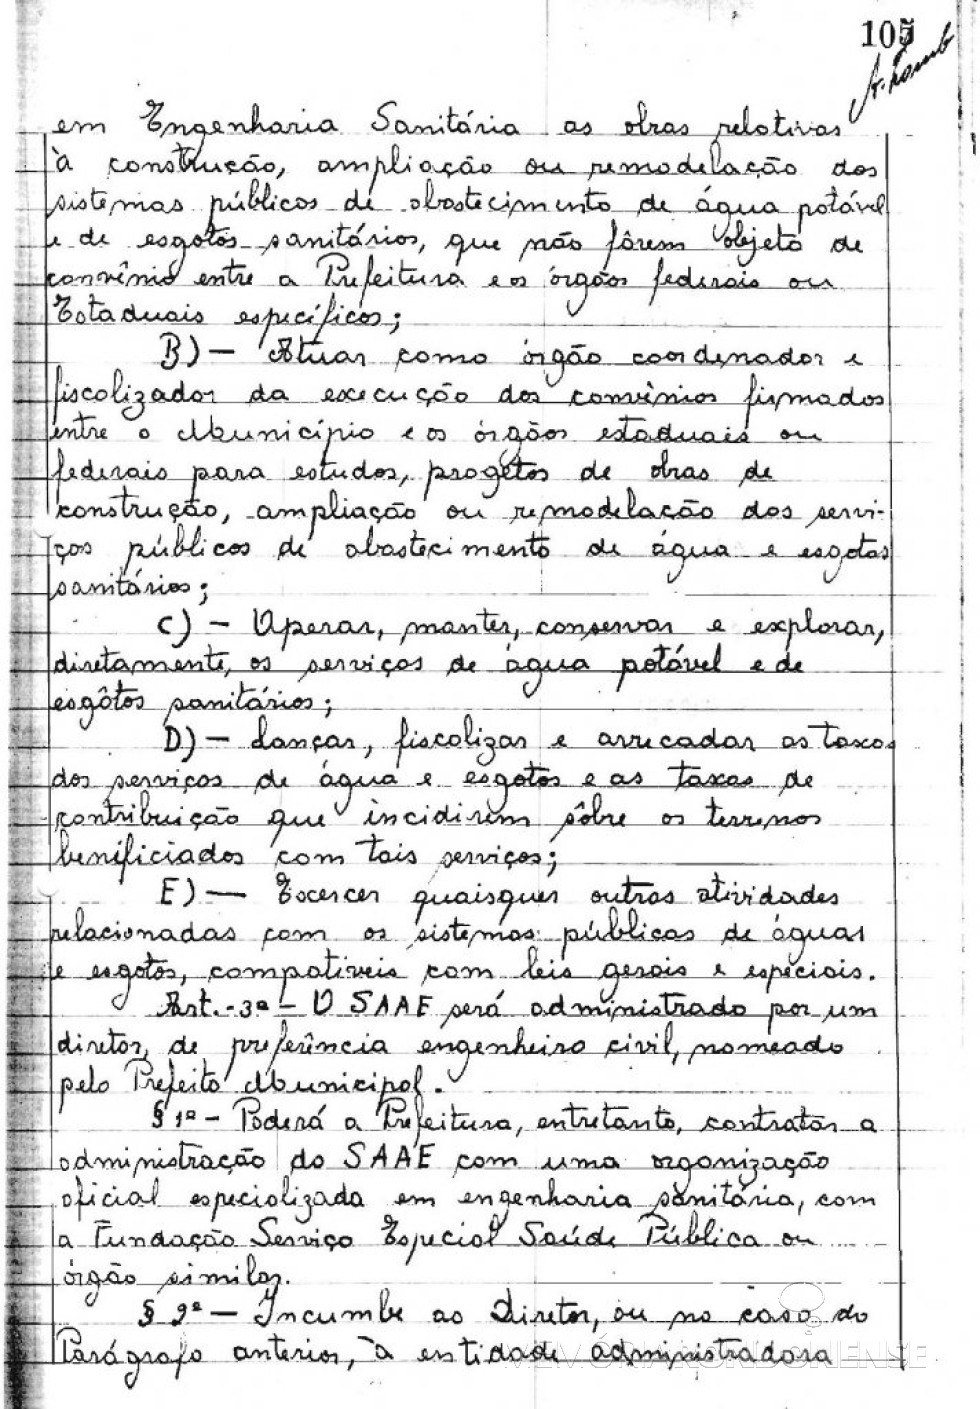 105
em Engenharia Sanitária as obras relativas
à construção, ampliação ou remodelação dos
sistemas públicos de abastecimento de água potável
e de esgotos sanitários, que não fôrem objeto de
convênio entre a Prefeitura e os órgãos federais ou
Estaduais específicos;
B) — Atuar como órgão coordenador e
fiscolizador da execução dos convênios firmados
entre o Município e os órgãos estaduais ou
federais para estudos, progetos de obras de
construção, ampliação ou remodelação dos servi-
ços públicos de abastecimento de água e esgotos
sanitários;
C) — Operar, manter, conservar e explorar,
diretamente, os serviços de água potável e de
esgôtos sanitários;
D) — Lançar, fiscolizar e arrecadar as taxas
dos serviços de água e esgotos e as taxas de
contribuição que incidirem sôbre os terrenos
benificiados com tais serviços;
E) — Excercer quaisquer outras atividades
relacionadas com os sistemas públicos de águas
e esgotos, compativeis com leis gerais e especiais.
Art.-3º - O SAAE será administrado por um
diretor, de preferência engenheiro civil, nomeado
pelo Prefeito Municipal.
§ 1º - Poderá a Prefeitura, entretanto, contratar a
administração do SAAE com uma organização
oficial especiolizada em engenharia sanitária, com
a Fundação Serviço Especial Saúde Pública ou
órgão similar.
§ 2º — Incumbe ao Diretor, ou no caso do
Parágrafo anterior, à entidade administradora
MEMÓRIA RONDONENSE